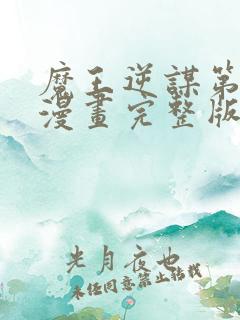 魔王逆謀第
漫畫完整版
光月夜也
未经同意禁止转载